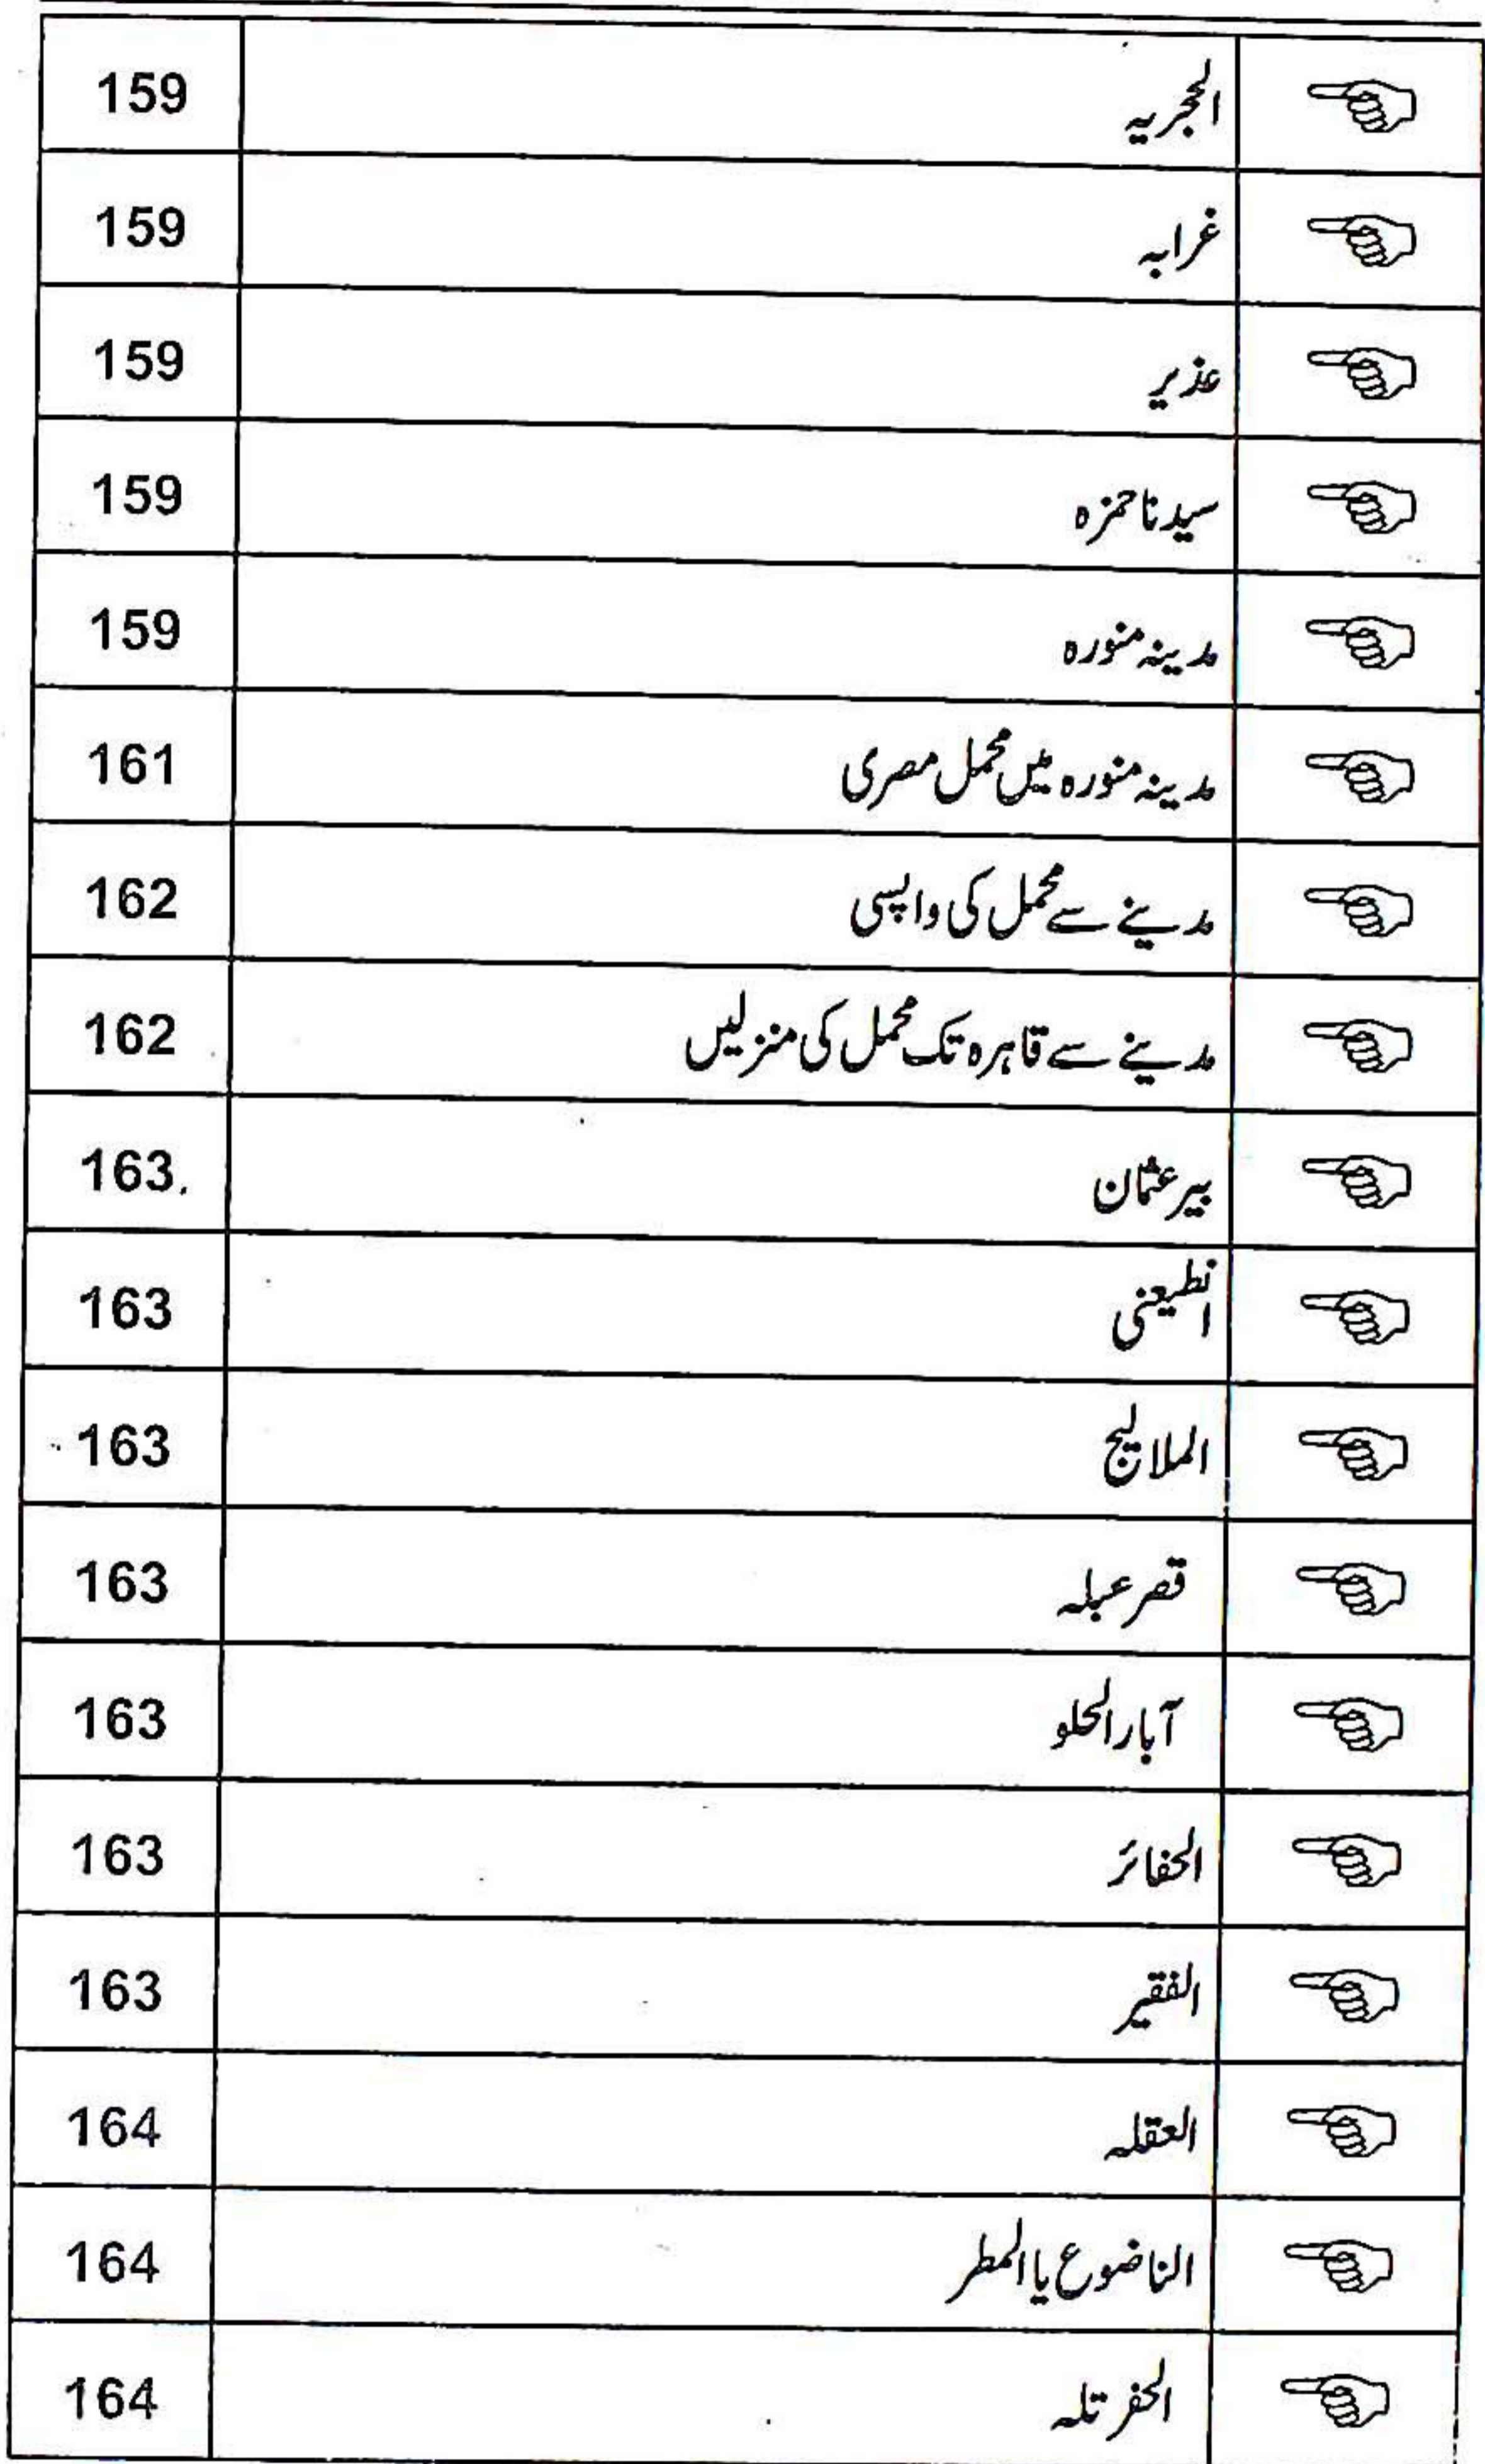 الحجریہ 159
غرابہ 159
عذیر 159
سیدنا حمزہ 159
مدینہ منورہ 159
مدینہ منورہ میں محمل مصری 161
مدینے سے محمل کی واپسی 162
مدینے سے قاہرہ تک محمل کی منزلیں 162
بیر عثمان 163
انطیعنی 163
الملالیج 163
قصر عبلہ 163
آبار الحلو 163
الحفائر 163
الفقیر 163
العقلہ 164
الناضوع یا المطر 164
الحفر تلہ 164